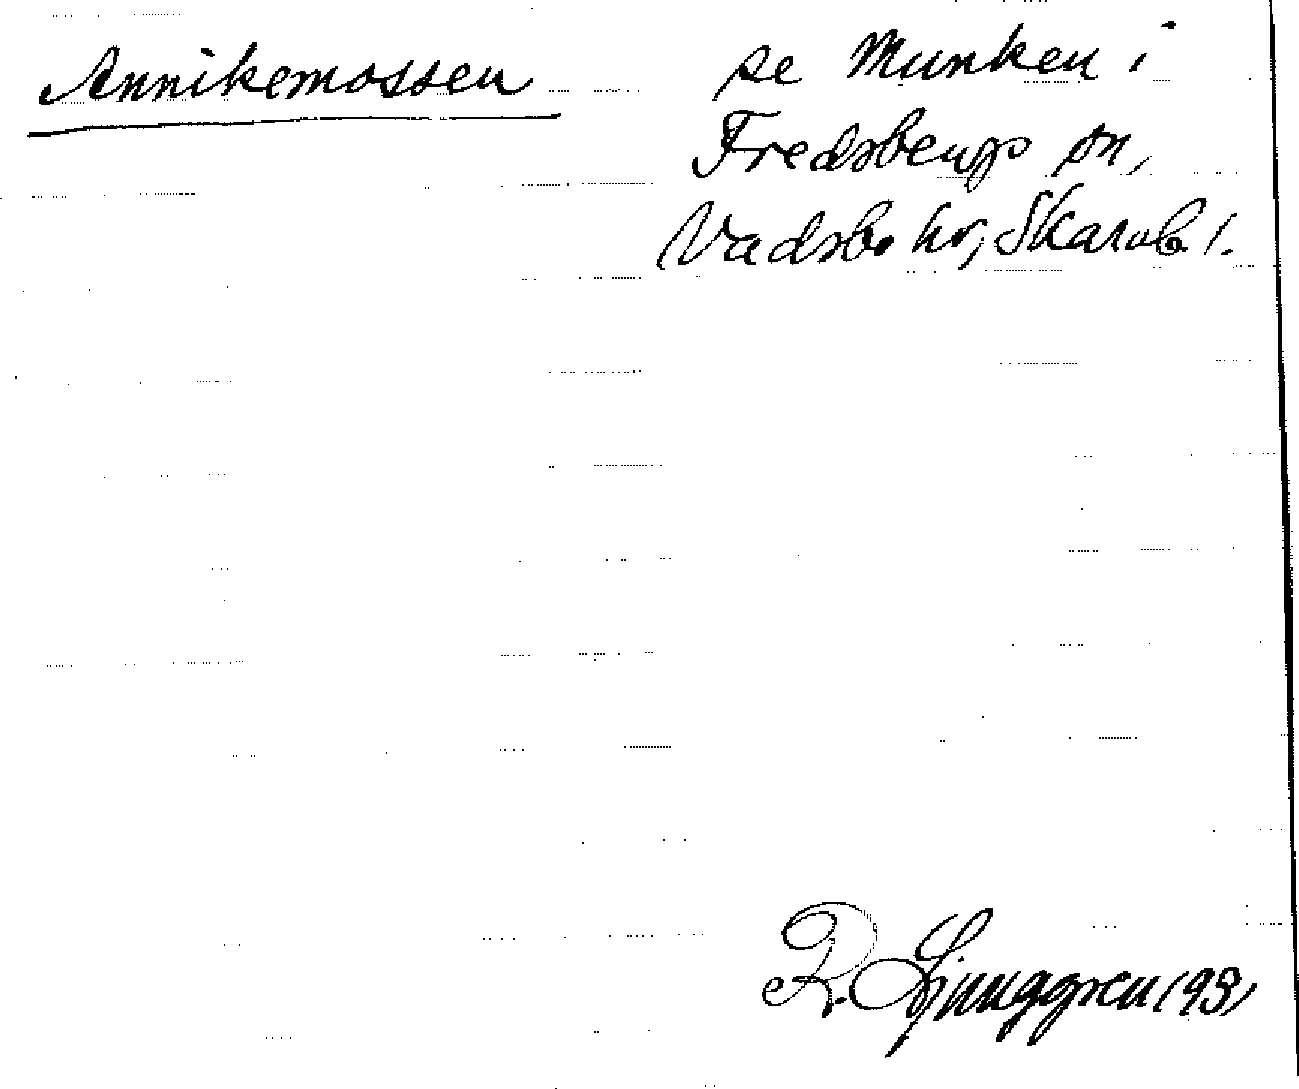 Annikemossen
se Munken i
Fredsbergs sn,
Vadsbo hd, Skarab. l.
R. Ljunggren